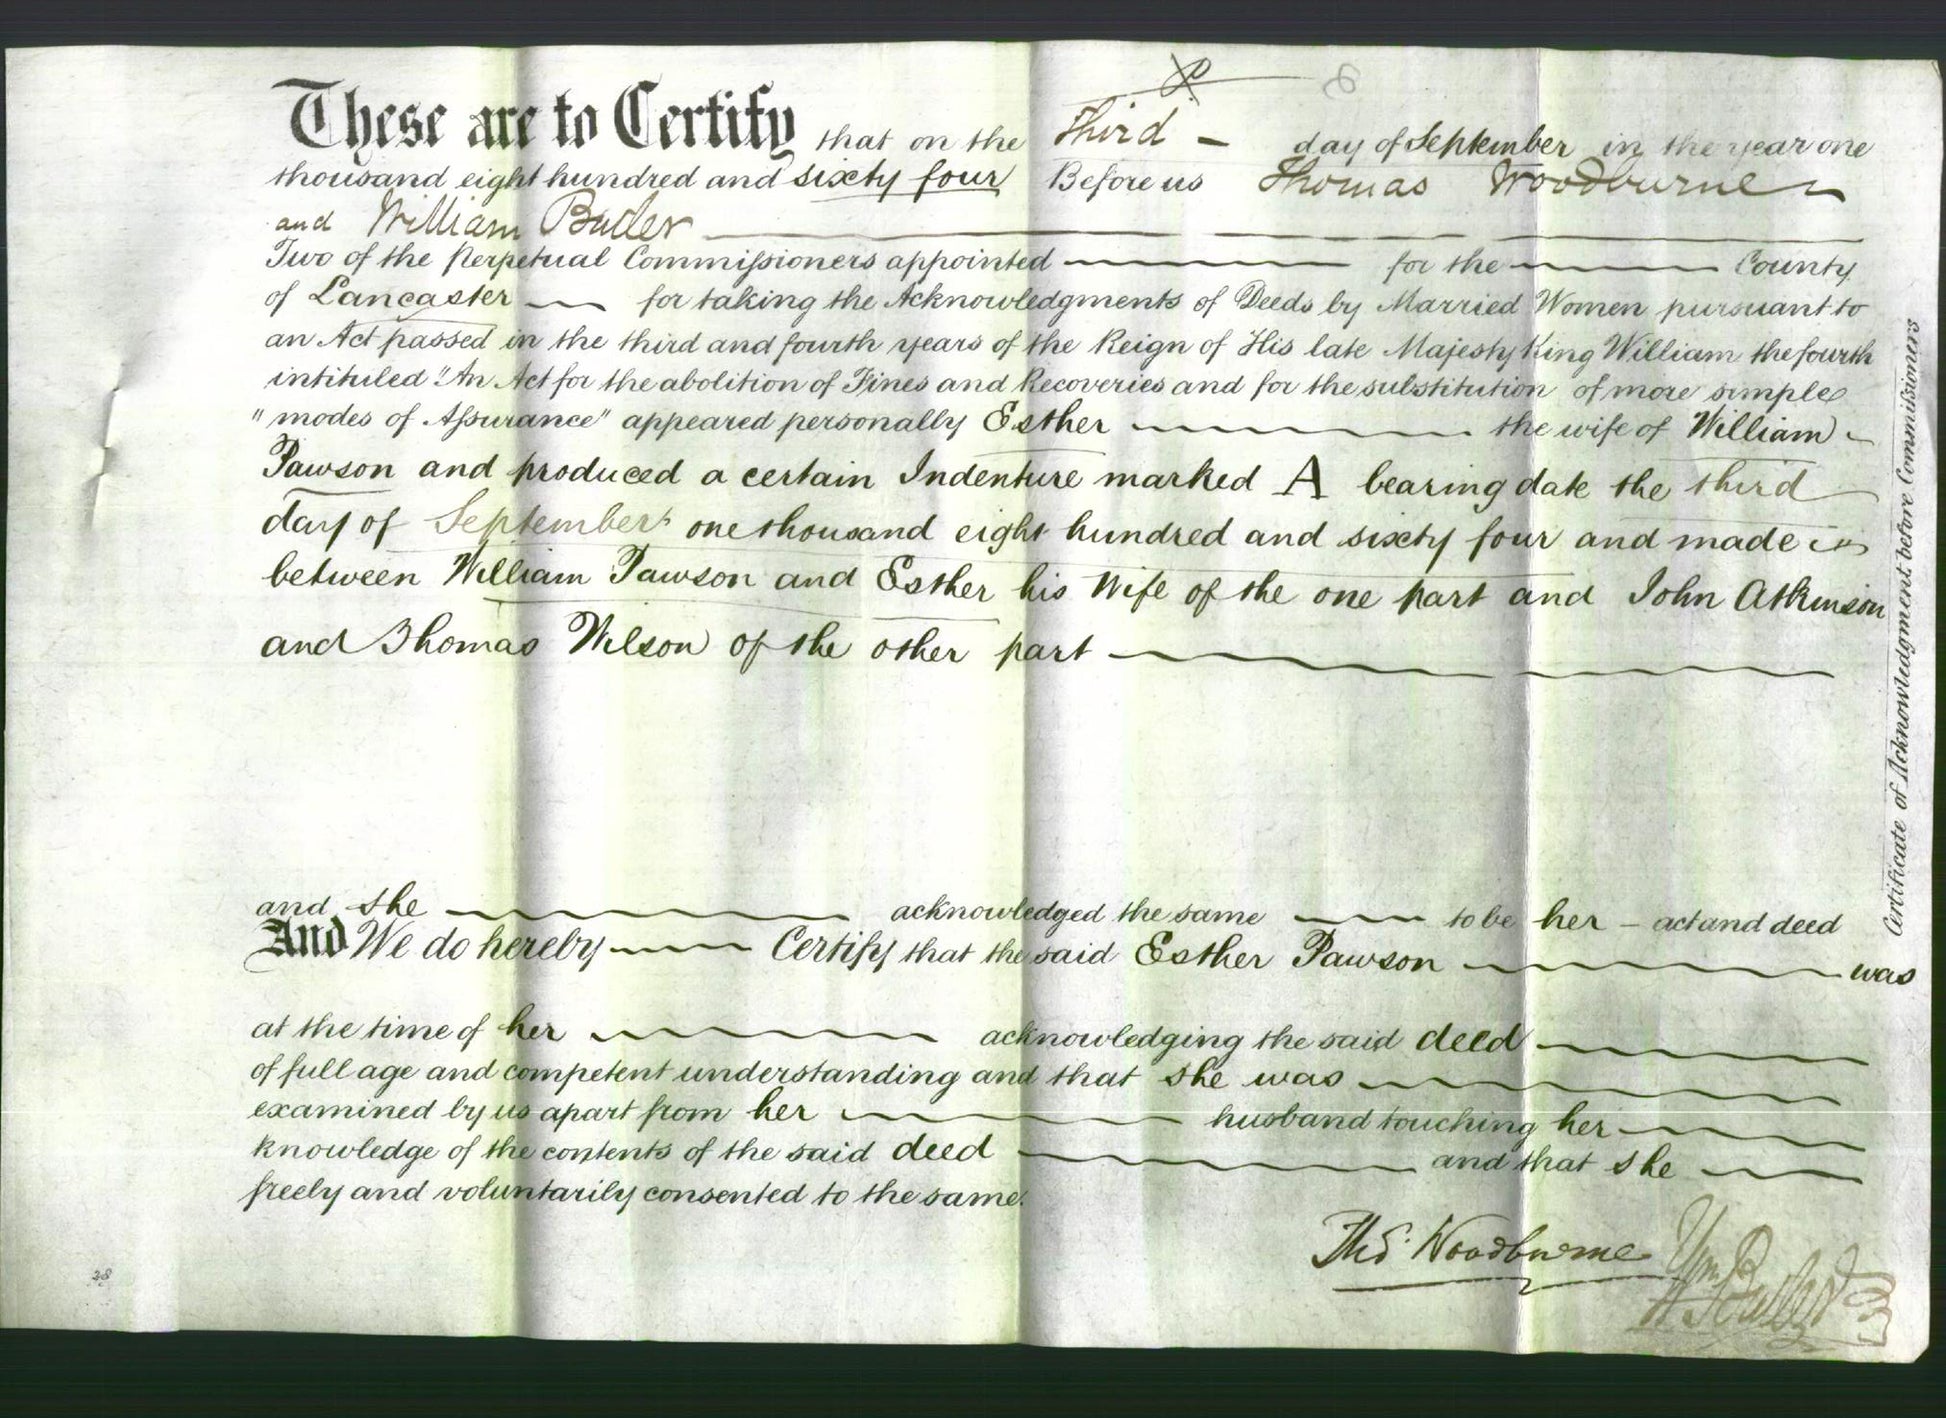 P
8
These are to Certify that on the third day of September in the year one
thousand eight hundred and sixty four Before us Thomas Woodburne
and William Butler
Two of the Perpetual Commissioners appointed for the County
of Lancaster for taking the Acknowledgments of Deeds by Married Women pursuant to
an Act passed in the third and fourth years of the Reign of His late Majesty King William the fourth
intituled "An Act for the abolition of Fines and Recoveries and for the substitution of more simple
"modes of Assurance" appeared personally Esther the wife of William
Pawson and produced a certain Indenture marked A bearing date the third
day of September one thousand eight hundred and sixty four and made
between William Pawson and Esther his Wife of the one part and John Atkinson
and Thomas Wilson of the other part
and she acknowledged the same to be her act and deed
And We do hereby Certify that the said Esther Pawson was
at the time of her acknowledging the said deed
of full age and competent understanding and that she was
examined by us apart from her husband touching her
knowledge of the contents of the said deed and that she
freely and voluntarily consented to the same.
Thos. Woodburne
Wm Butler
28
Certificate of Acknowledgment before Commissioners